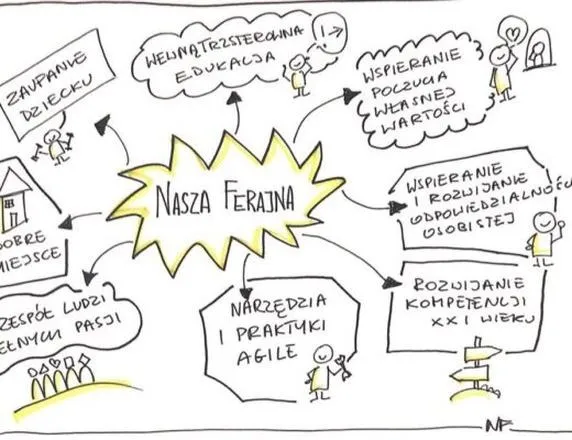 ZAUFANIE
DZIECKU
WEWNĄTRZSTEROWNA
EDUKACJA
1→
WSPIERANIE
POCZUCIA
WŁASNEJ
WARTOŚCI
NASZA FERAJNA
WSPIERANIE
I ROZWIJANIE
ODPOWIEDZIALNOŚCI
OSOBISTEJ
DOBRE
MIEJSCE
ZESPÓŁ LUDZI
EŁNYCH PASJI
NARZĘDZIA
I PRAKTYKI
AGILE
ROZWIJANIE
KOMPETENCJI
XXI WIEKU
NF